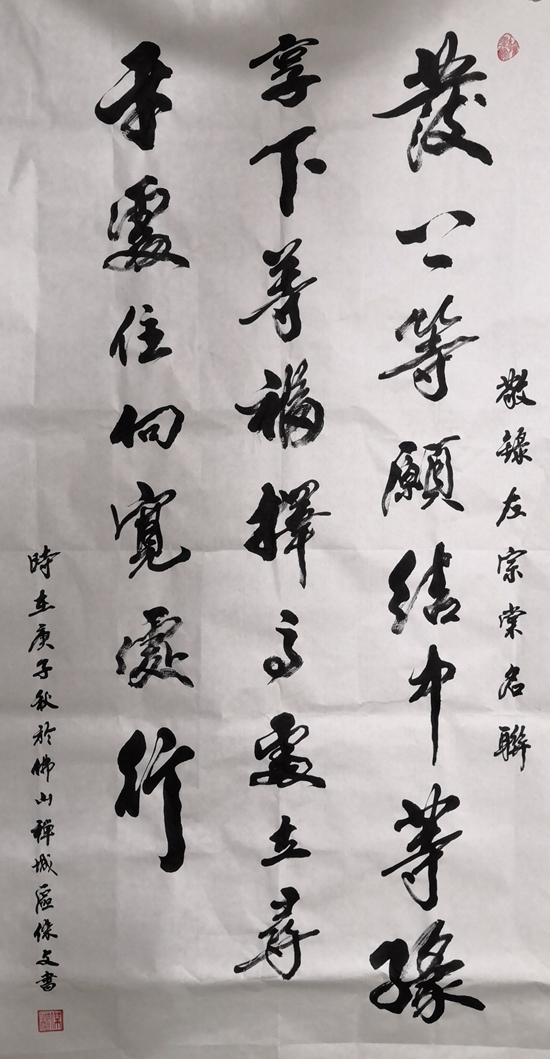 敬錄左宗棠名聯
發上等願結中等緣
享下等福擇高處立尋
平處住向寬處行
時在庚子秋於佛山禪城區保文書